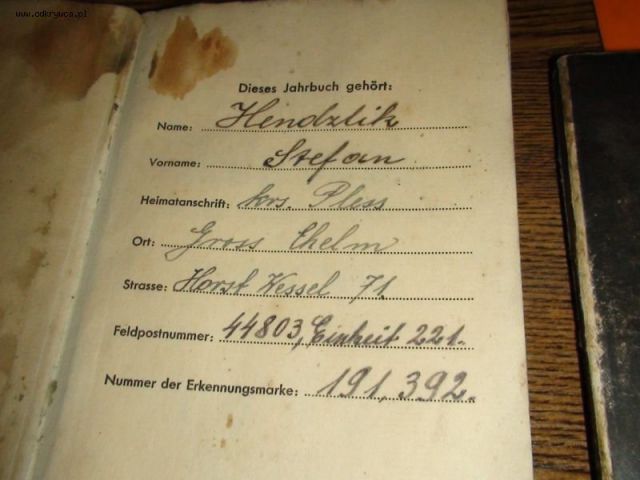 www.odkrywca.pl
Dieses Jahrbuch gehört:
Name: Hendzlik
Vorname: Stefan
Heimatanschrift: krs. Pless
Ort: Gross Chelm
Strasse: Horst Wessel 71.
Feldpostnummer: 44803, Einheit 221.
Nummer der Erkennungsmarke: 191,392.